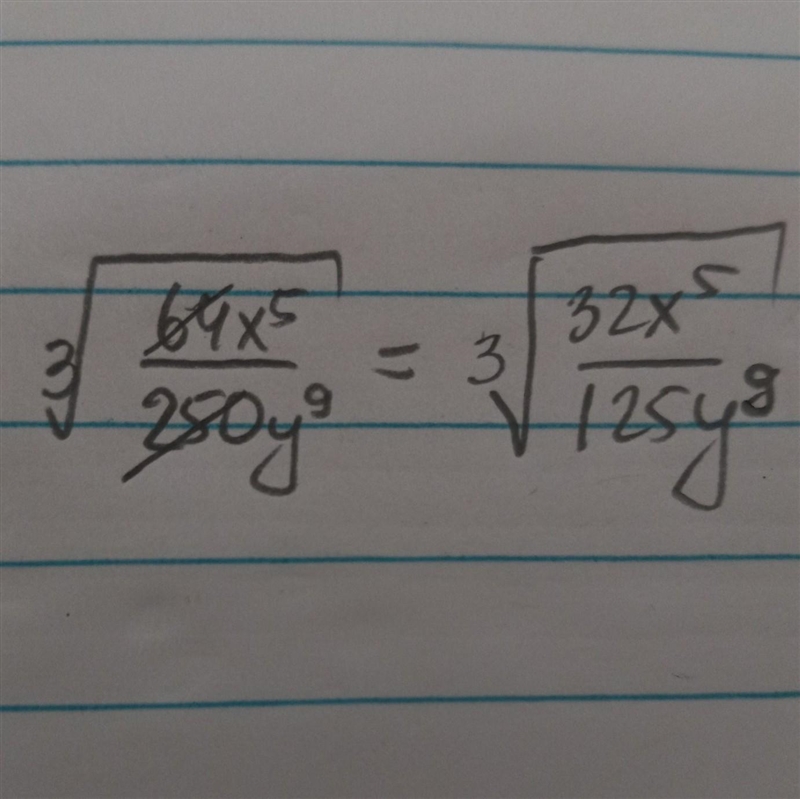 ∛(64x⁵/250y⁹) = ∛(32x⁵/125y⁹)